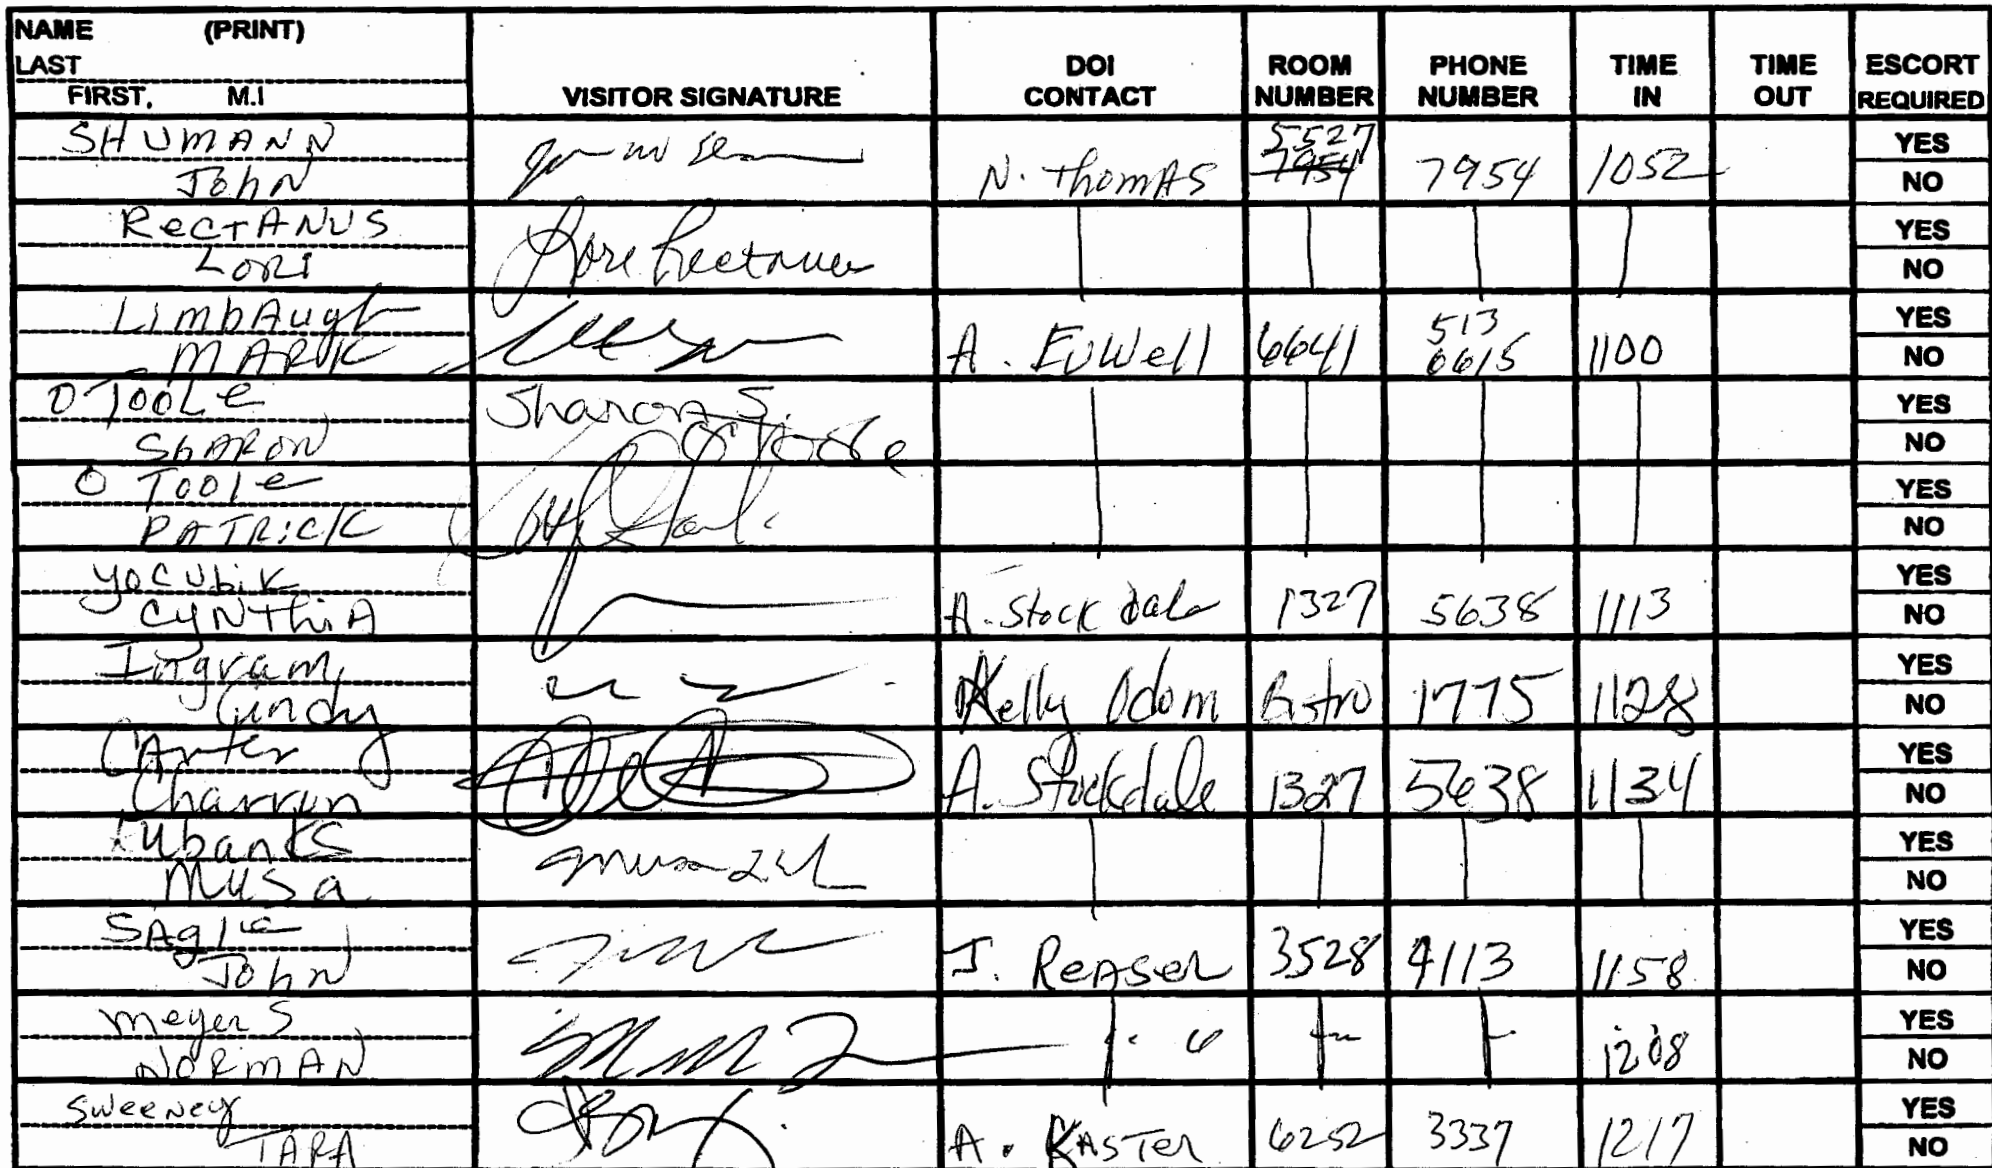 NAME (PRINT)
LAST
FIRST, M.I
VISITOR SIGNATURE
DOI CONTACT
ROOM NUMBER
PHONE NUMBER
TIME IN
TIME OUT
ESCORT REQUIRED
SHUMANN
John
N. Thomas
5527
7954
7954
1052
YES
NO
RectANUS
LORI
Lori Rectanus
YES
NO
LimbAugh
MARK
A. EuWell
6641
513
6615
1100
YES
NO
O Toole
ShARON
Sharon S.
O'Toole
YES
NO
O Toole
PATRicK
YES
NO
yocubik
CyNThiA
A. Stockdale
1327
5638
1113
YES
NO
Ingram
Cindy
Kelly Odom
Bistro
1775
1128
YES
NO
CArter
A. Stockdale
1327
5638
1134
YES
NO
Eubanks
Musa
YES
NO
SAgle
John
J. ReAser
3528
4113
1158
YES
NO
meyers
NORMAN
1208
YES
NO
Sweeney
TARA
A. KASTer
6252
3337
1217
YES
NO